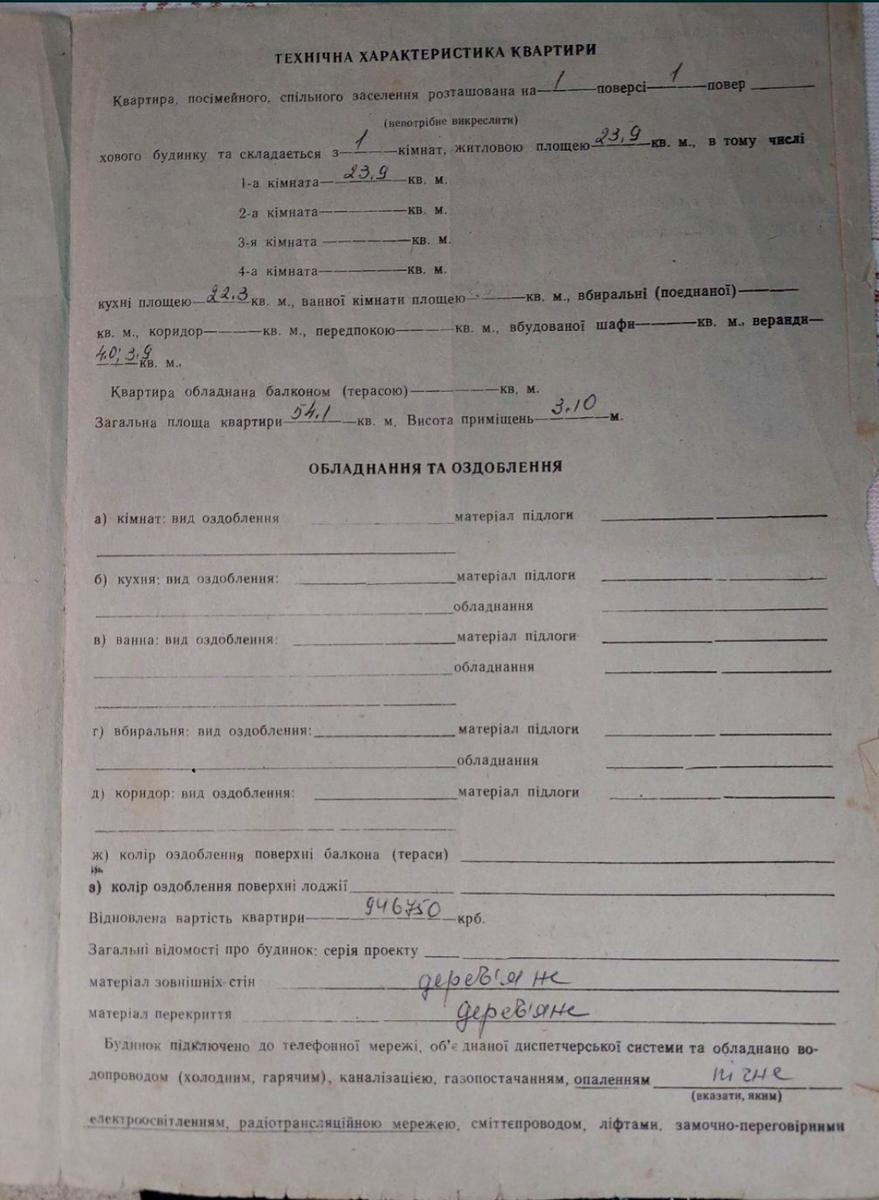 ТЕХНІЧНА ХАРАКТЕРИСТИКА КВАРТИРИ
Квартира, посімейного, спільного заселення розташована на 1 поверсі 1 повер
(непотрібне викреслити)
хового будинку та складається з 1 кімнат, житловою площею 23,9 кв. м., в тому числі
1-а кімната 23,9 кв. м.
2-а кімната кв. м.
3-я кімната кв. м.
4-а кімната кв. м.
кухні площею 22.3 кв. м., ванної кімнати площею кв. м., вбиральні (поєднаної)
кв. м., коридор кв. м., передпокою кв. м., вбудованої шафи кв. м., веранди
4.0; 3.9 кв. м..
Квартира обладнана балконом (терасою) кв. м.
Загальна площа квартири 54,1 кв. м. Висота приміщень 3.10 м.
ОБЛАДНАННЯ ТА ОЗДОБЛЕННЯ
а) кімнат: вид оздоблення матеріал підлоги
б) кухня: вид оздоблення: матеріал підлоги
обладнання
в) ванна: вид оздоблення: матеріал підлоги
обладнання
г) вбиральня: вид оздоблення: матеріал підлоги
обладнання
д) коридор: вид оздоблення: матеріал підлоги
ж) колір оздоблення поверхні балкона (тераси)
з) колір оздоблення поверхні лоджії
Відновлена вартість квартири 946750 крб.
Загальні відомості про будинок: серія проекту
матеріал зовнішніх стін дерев'яне
матеріал перекриття дерев'яне
Будинок підключено до телефонної мережі, об'єднаної диспетчерської системи та обладнано во-
допроводом (холодним, гарячим), каналізацією, газопостачанням, опаленням пічне
(вказати, яким)
електроосвітленням, радіотрансляційною мережею, сміттєпроводом, ліфтами, замочно-переговірними